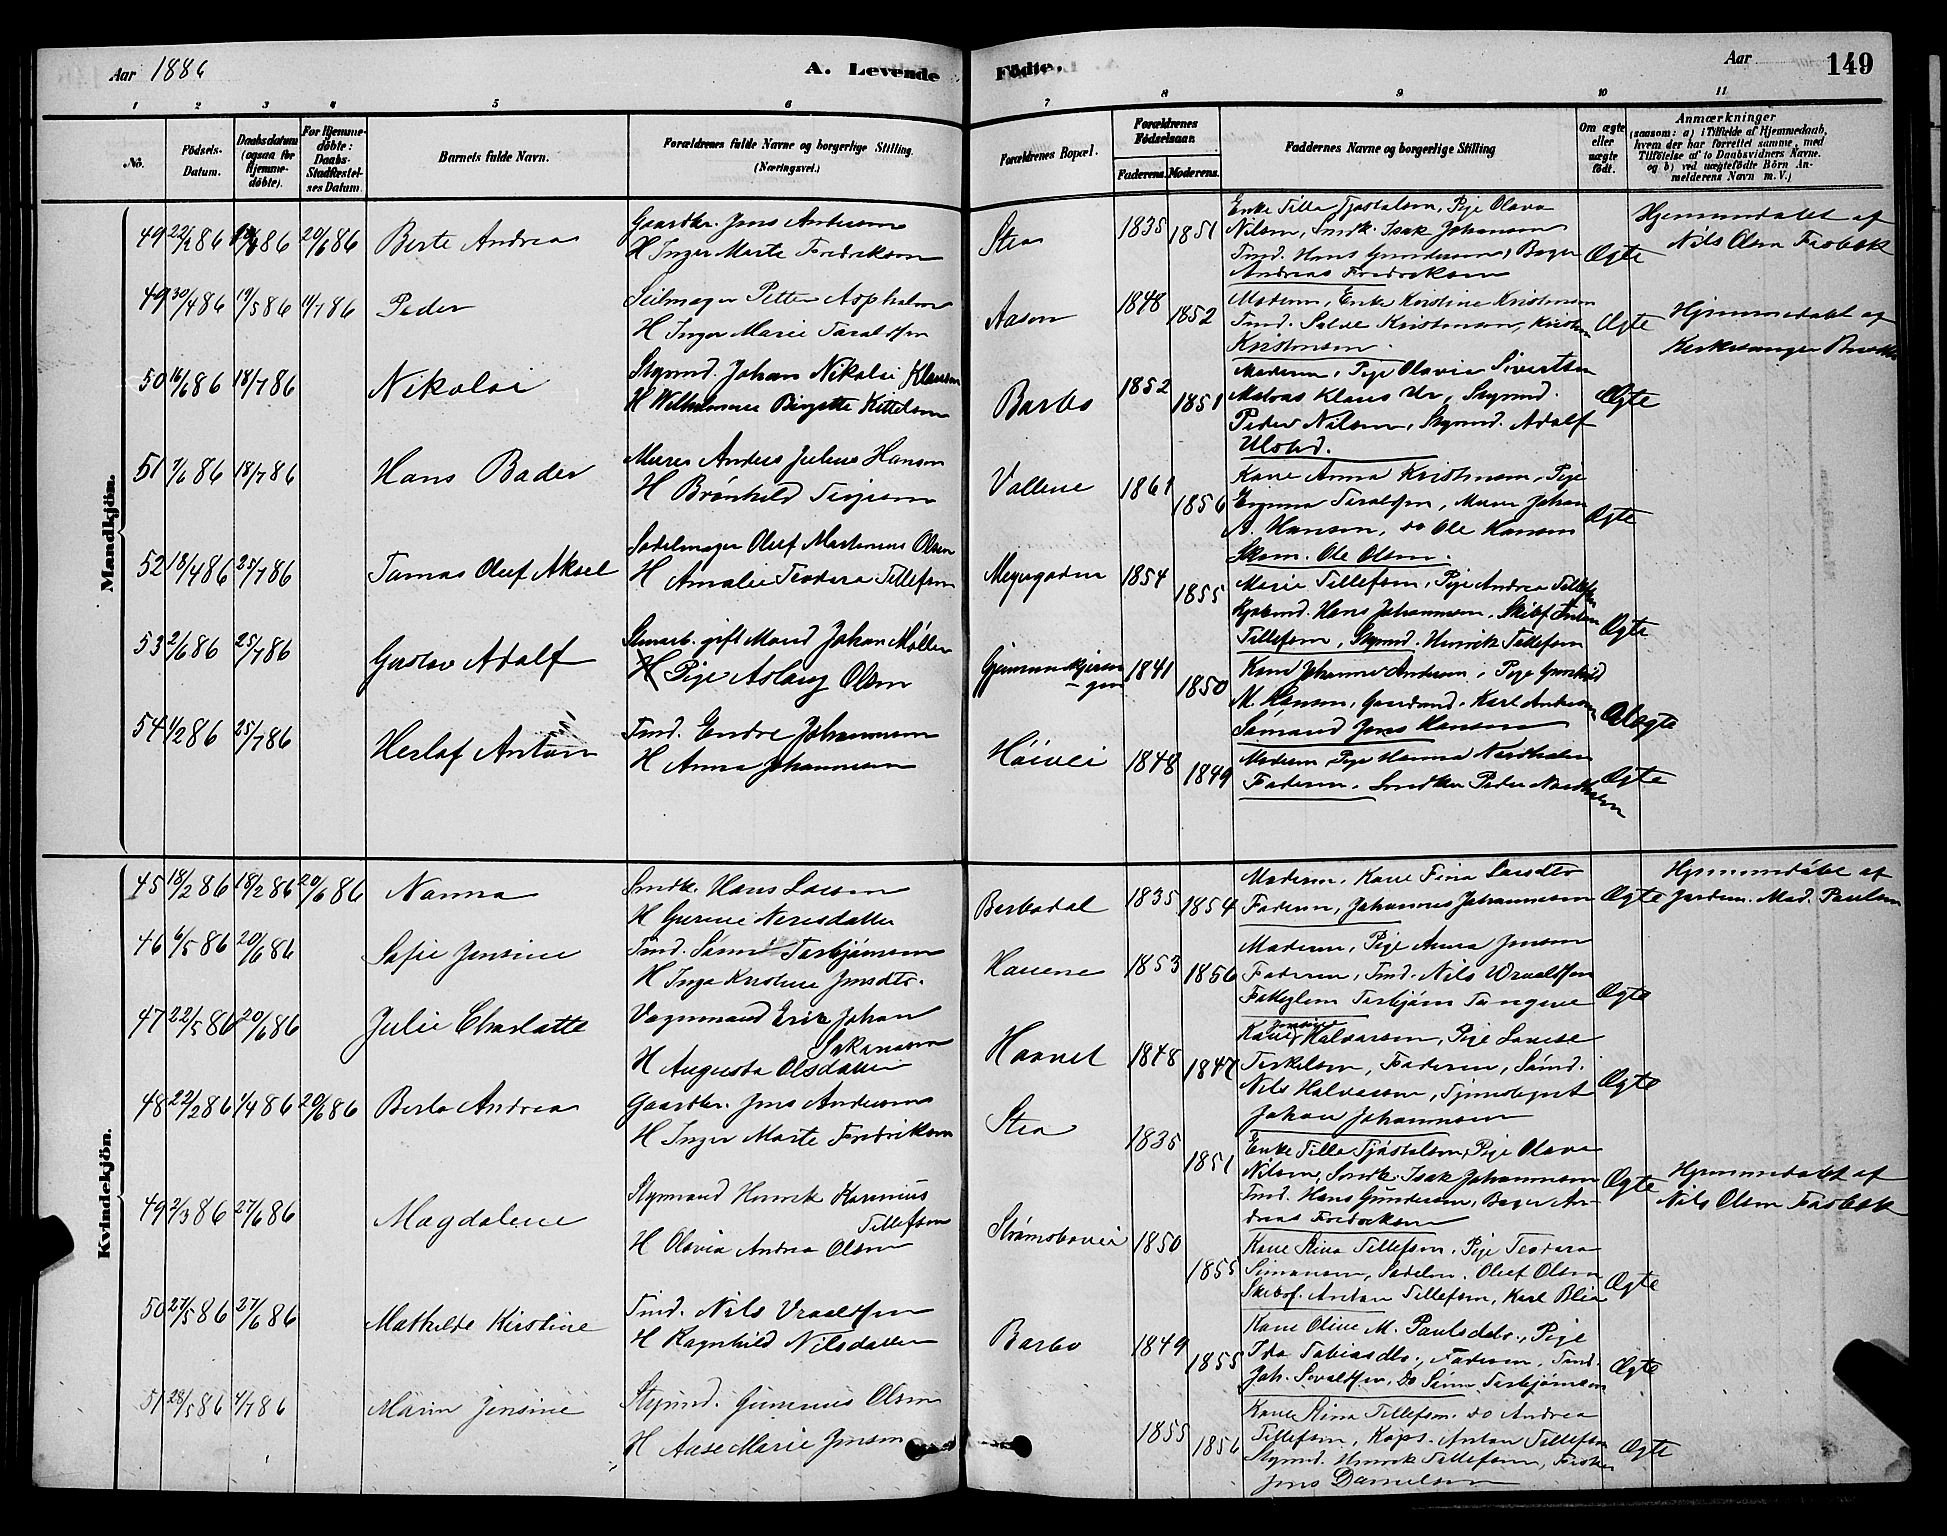 Aar 1886
A. Levende
Födte.
Aar
149
1 2 3 4 5 6 7 8 9 10 11
No.
Födsels-Datum.
Daabsdatum (ogsaa for Hjemmedöbte).
For Hjemmedöbte: Daabs-Stadfæstelses Datum.
Barnets fulde Navn.
Forældrenes fulde Navne og borgerlige Stilling. (Næringsvei.)
Forældrenes Bopæl.
Forældrenes Födselsaar.
Faderens. Moderens.
Faddernes Navne og borgerlige Stilling
Om ægte eller uægte födt.
Anmærkninger
(saasom: a) i Tilfælde af Hjemmedaab, hvem der har forrettet samme, med Tilföielse af to Daabsvidners Navne. og b) ved uægtefödte Börn Anmelderens Navn m. V.)
Mandkjön.
49 22/2 86 86 20/6 86 Berte Andrea
Gaardbr. Jens Andersen
H Inger Marte Fredriksen
Stea 1835 1851
Enke Tilla Tjøstolsen, Pige Olava
Nilsen, Smdk. Isak Johansen
Tmd. Hans Gundersen, Bager
Andreas Fredriksen
Ægte
Hjemmedøbt af
Nils Olsen Frobæk
49 30/4 86 19/5 86 11/7 86 Peder
Seilmager Petter Aspholm
H Inger Marie Taraldsen
Aasen 1848 1852
Moderen, Enke Kirstine Kristensen
Tmd. Salve Kristensen, Kristen
Kristensen.
Ægte
Hjemmedøbt af
Kirkesanger
50 16/6 86 18/7 86 Nikolai
Stymd. Johan Nikolai Klausen
H Wilhelmine Birgitte Kittelsen
Barbo 1852 1851
Moderen, Pige Olavia Sivertsen
Matros Klaus Ur, Stymd.
Peder Nilsen, Stymd. Adolf
Ulsted.
Ægte
51 7/6 86 18/7 86 Hans Bader
Murer Anders Julius Hansen
H Brønhild Terjesen
Vallene 1861 1856
Kone Anna Kristensen, Pige
Emma Taraldsen, Murer Johan
A. Hansen, do Ole Hansen
Skom. Ole Olsen.
Ægte
52 18/4 86 25/7 86 Tomas Oluf Aksel
Sadelmager Oluf Martinius Olsen
H Amalie Teodora Tellefsen
Meyergaden 1854 1855
Marie Tellefsen, Pige Andrea Tellefsen
Kjøbmd. Hans Johannesen, Skibsf. Anton
Tellefsen, Stymd. Henrik Tellefsen
Ægte
53 2/6 86 25/7 86 Gustav Adolf
Stenarb. gift Mand Johan Møller
H Pige Aslaug Olsen
1841 1850
Kone Johanne Andersen, Pige Gunhild
M. Hansen, Gaardmd. Karl Andersen
Sømand Jens Hansen
Uægte
54 1/2 86 25/7 86 Herlof Anton
Tmd. Endre Johannesen
H Anna Johannesen
Høivei 1848 1849
Moderen, Pige Hanna Nordholm
Faderen, Smdkbr Peder Nordholm
Ægte
Kvindekjön.
45 18/2 86 18/2 86 20/6 86 Nanna
Smdk. Hans Larsen
H Gurine Neresdatter
Berbodal 1835 1854
Moderen, Kone Fina Larsdtr
Faderen, Johannes Johannesen
Ægte
Hjemmedøbt af
Jordem. Mad. Paulsen
46 6/5 86 20/6 86 Sofie Jensine
Tmd. Sønni Torbjørnsen
H Inga Kirstine Jensdtr.
Havene 1853 1856
Moderen, Pige Anna Jensen
Faderen, Tmd. Nils Vraaldsen
Torbjørn Tangene
Ægte
47 22/5 86 20/6 86 Julie Charlotte
Vognmand Erik Johan
Sakariasen
H Augusta Olsdatter
Haavet 1848 1847
Kone Jensine Halvorsen, Pige Lovise
Terkelsen, Faderen, Sømd.
Nils Halvorsen, Tjenestegut
Johan Johannesen
Ægte
48 22/2 86 1/4 86 20/6 86 Berte Andrea
Gaardbr. Jens Andersen
H Inger Marte Fredriksen
Stea 1835 1851
Enke Tilla Tjøstolsen, Pige Olava
Nilsen, Smdk. Isak Johannesen
Tmd. Hans Gundersen, Bager An-
dreas Fredriksen
Ægte
Hjemmedøbt af
Nils Olsen Frobæk
49 2/3 86 27/6 86 Magdalene
Stymand Henrik Karinius
Tellefsen
H Olavia Andrea Olsen
Strømsbovei 1850 1855
Kone Stina Tellefsen, Pige Teodora
Simonsen, Sadelm. Oluf Olsen
Skibsf. Anton Tellefsen, Karl Blia
Ægte
50 27/5 86 27/6 86 Mathilde Kirstine
Tmd. Nils Vraaldsen
H Ragnhild Nilsdatter
Barbo 1849 1855
Kone Oline M. Paulsdtr., Pige
Ida Tobiasdtr., Faderen, Tmd.
Joh. Sevaldsen, Do Sønni Torbjørnsen
Ægte
51 28/5 86 4/7 86 Maren Jensine
Stymd. Gunnius Olsen
H Aase Marie Jensen
1855 1856
Kone Stina Tellefsen, do Andrea
Tellefsen, Kapt. Anton Tellefsen
Stymd. Henrik Tellefsen,
Jens Danielsen
Ægte